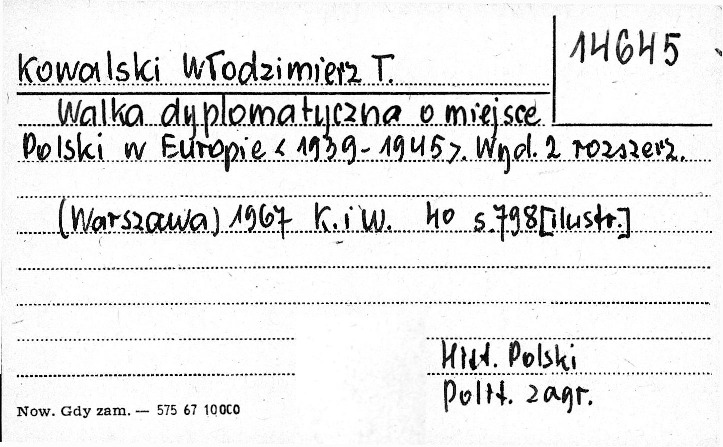 14645
Kowalski Włodzimierz T.
Walka dyplomatyczna o miejsce
Polski w Europie <1939-1945>. Wyd. 2 rozszerz.
(Warszawa) 1967 K.iW. 4o s.798[ilustr.]
Hist. Polski
Polit. zagr.
Now. Gdy zam. — 575 67 10000